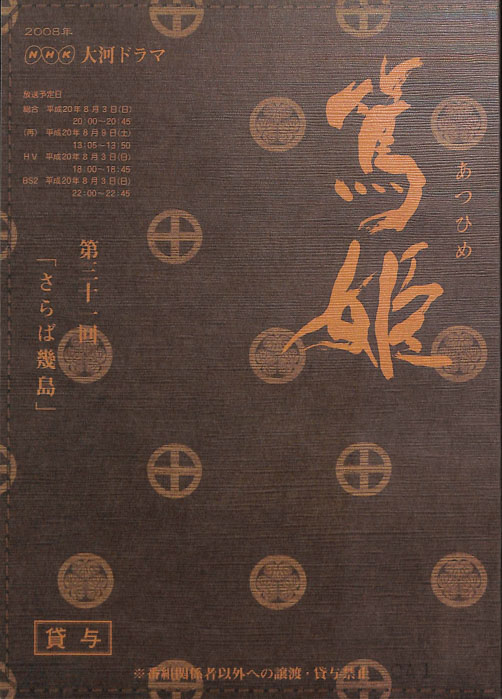 2008年
NHK 大河ドラマ
放送予定日
総合 平成20年8月3日(日)
20:00〜20:45
(再) 平成20年8月9日(土)
13:05〜13:50
HV 平成20年8月3日(日)
18:00〜18:45
BS2 平成20年8月3日(日)
22:00〜22:45
篤姫
あつひめ
第三十一回
「さらば幾島」
貸与
※番組関係者以外への譲渡・貸与禁止